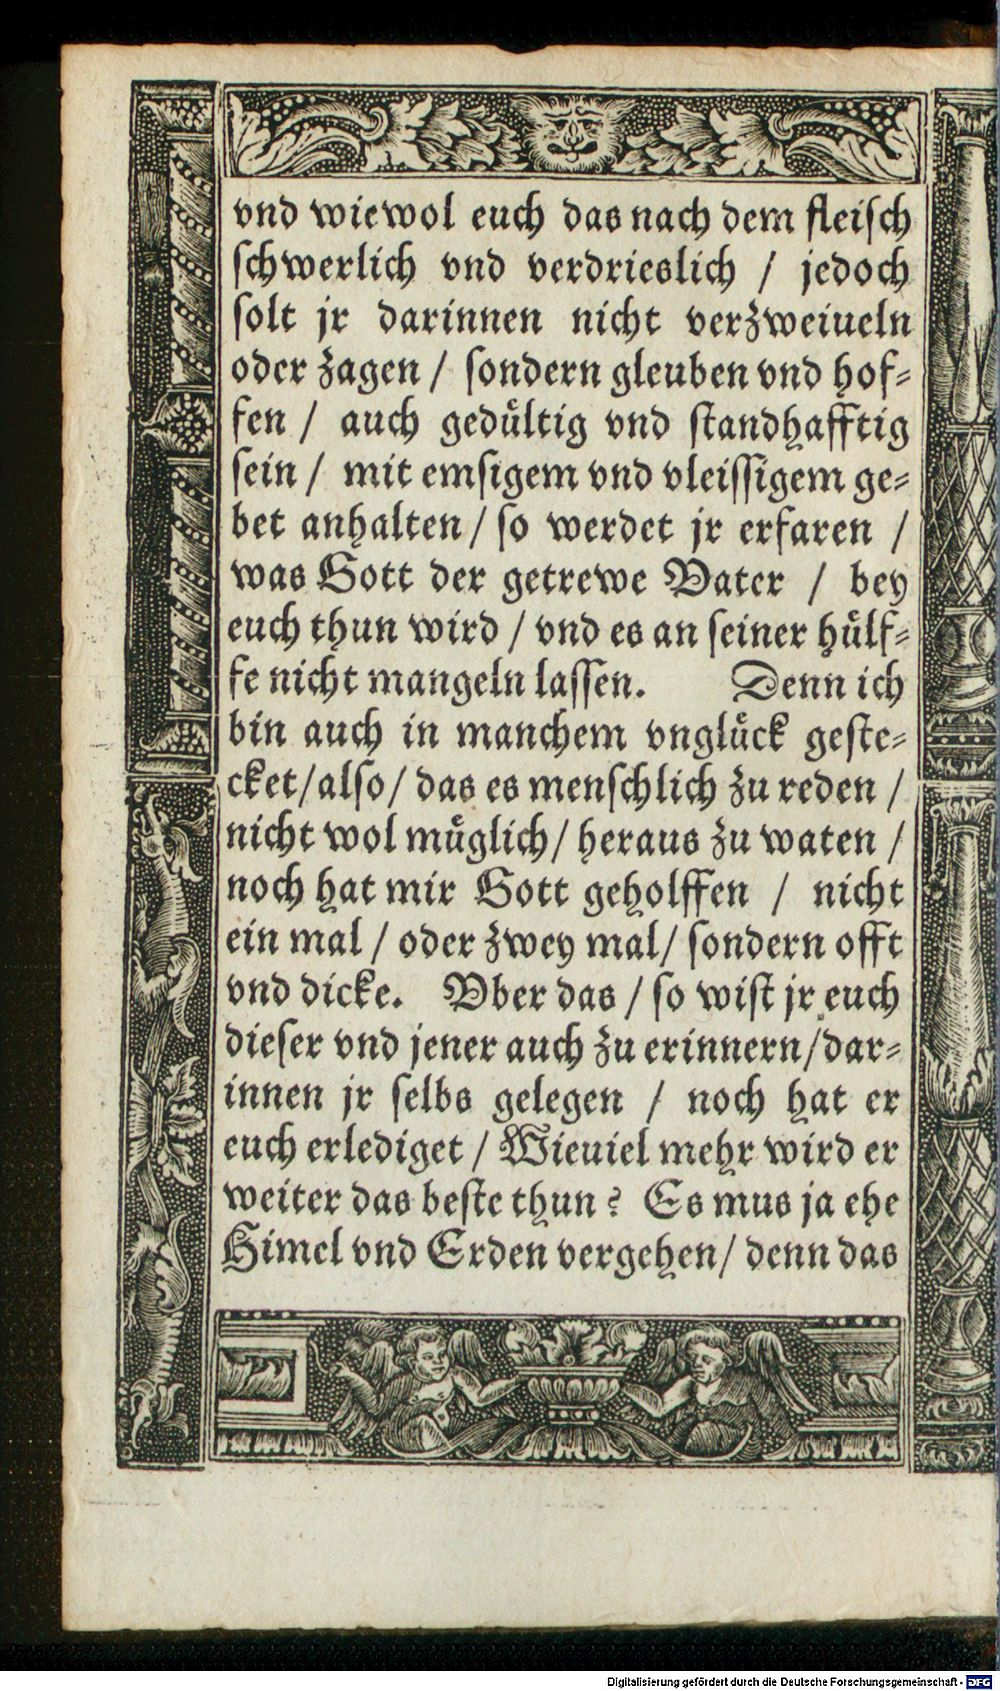 vnd wiewol euch das nach dem fleisch
schwerlich vnd verdrieslich / jedoch
solt jr darinnen nicht verzweiueln
oder zagen / sondern gleuben vnd hof-
fen / auch gedültig vnd standhafftig
sein / mit emsigem vnd vleissigem ge-
bet anhalten / so werdet jr erfaren /
was Gott der getrewe Vater / bey
euch thun wird / vnd es an seiner hülf-
fe nicht mangeln lassen. Denn ich
bin auch in manchem vnglück geste-
cket/also/ das es menschlich zu reden /
nicht wol müglich/ heraus zu waten /
noch hat mir Gott geholffen / nicht
ein mal / oder zwey mal/ sondern offt
vnd dicke. Vber das / so wist jr euch
dieser vnd jener auch zu erinnern/dar-
innen jr selbs gelegen / noch hat er
euch erlediget / Wieuiel mehr wird er
weiter das beste thun? Es mus ja ehe
Himel vnd Erden vergehen/ denn das
Digitalisierung gefördert durch die Deutsche Forschungsgemeinschaft - DFG